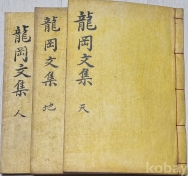 龍岡文集 天
龍岡文集 地
龍岡文集 人
kobay